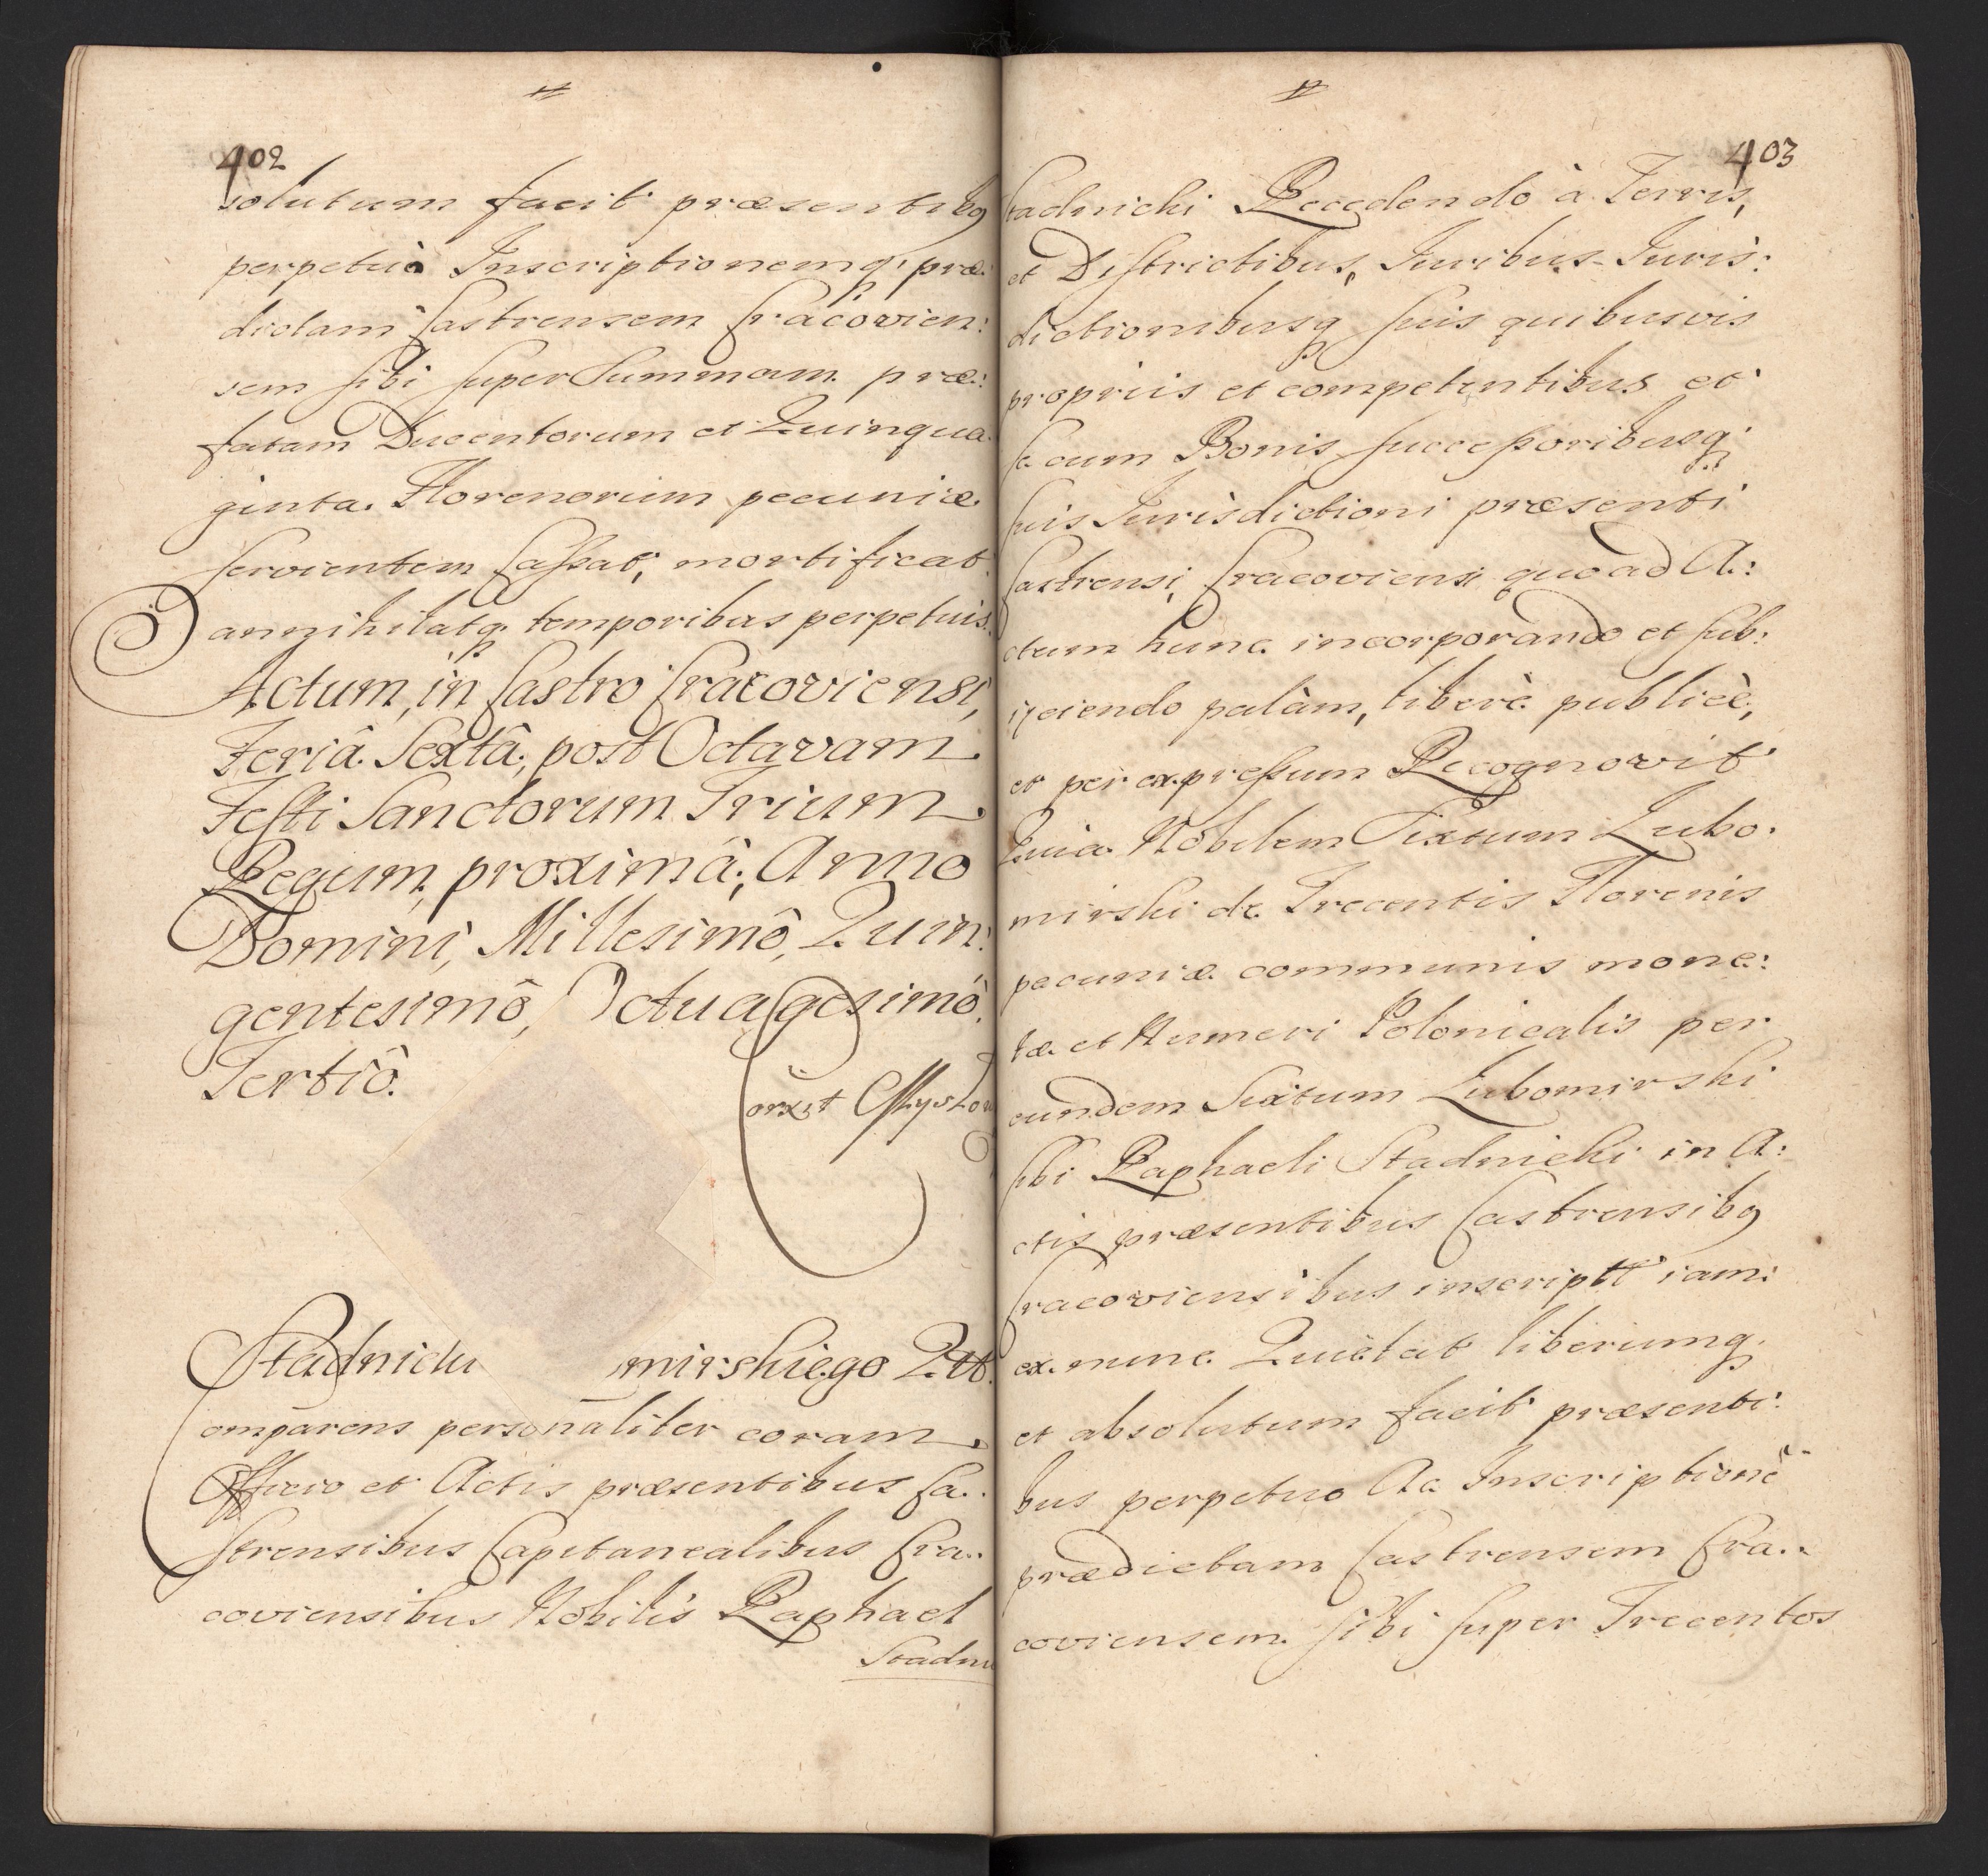 402
solutum facit præsentibq
perpetuò Inscriptionemq; præ:
dictam Castrensem Cracovien:
sem sibi super Summam præ:
fatam Ducentorum et Quinqua
ginta Florenorum pecuniæ
servientem Cassat, mortificat
annihilatq; temporibus perpetuis.
Actum, in Castro Cracoviensi,
Feriâ Sextâ, post Octavam
Festi Sanctorum Trium
Regum, proximâ; Anno
Domini, Millesimô, Quin:
gentesimô, Octuagesimô
Tertiô.
Stadnicki mirskiego Qtt.
Comparens personaliter coram
Officio et Actis præsentibus Ca:
strensibus Capitanealibus Cra:
coviensibus Nobilis Raphael
Stadni
403
Stadnicki Recedendo à Terris,
et Districtibus, Iuribus Iuris:
dictionibusq; suis quibusvis
propriis et competentibus et
se cum Bonis successoribusq;
suis Iurisdictioni præsenti
Castrensi, Cracoviensi quoad A:
ctum hunc incorporando et sub:
ijciendo palàm, liberè publicè,
et per expressum Recognovit
Quia Nobilem Sixtum Lubo:
mirski de Trecentis Florenis
pecuniæ communis mone:
tæ et Numeri Polonicalis per
eundem Sixtum Lubomirski
sibi Raphaeli Stadnicki in A:
ctis præsentibus Castrensibq
Cracoviensibus inscriptt iam:
ex nunc Quietat liberumq;
et absolutum facit præsenti:
bus perpetuo Ac Inscriptionē
prædictam Castrensem Cra:
coviensem sibi super Trecentos